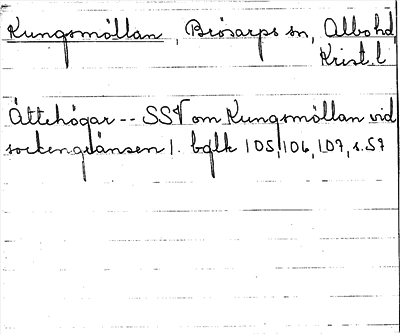 Kungsmöllan, Brösarps sn, Albo hd,
Krist. l.
Ättehögar -- SSV om Kungsmöllan vid
sockengränsen l. bglk 105, 106, 107, s. 57